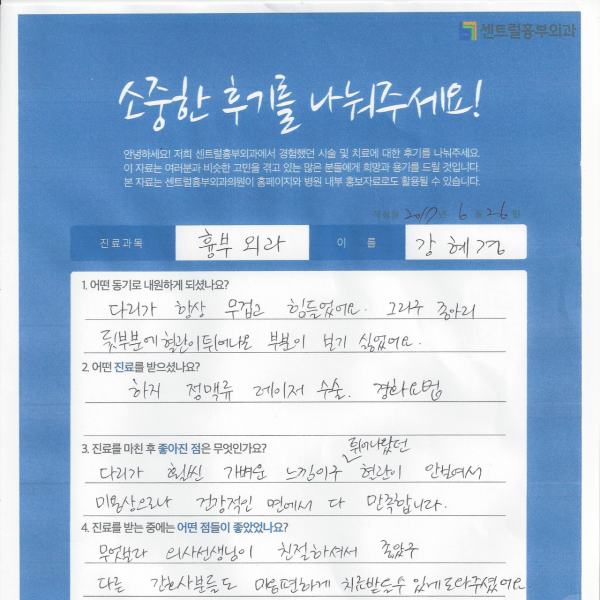 센트럴흉부외과
소중한 후기를 나눠주세요!
안녕하세요! 저희 센트럴흉부외과에서 경험했던 시술 및 치료에 대한 후기를 나눠주세요.
이 자료는 여러분과 비슷한 고민을 겪고 있는 많은 분들에게 희망과 용기를 드릴 것입니다.
본 자료는 센트럴흉부외과의원이 홈페이지와 병원 내부 홍보자료로도 활용될 수 있습니다.
작성일 2017년 6월 26일
진료과목 흉부외과 이 름 강혜경
1. 어떤 동기로 내원하게 되셨나요?
다리가 항상 무겁고 힘들었어요. 그리구 종아리
뒷부분에 혈관이 튀어나온 부분이 보기 싫었어요.
2. 어떤 진료를 받으셨나요?
하지 정맥류 레이저 수술. 경화요법
3. 진료를 마친 후 좋아진 점은 무엇인가요?
튀어나왔던
다리가 훨씬 가벼운 느낌이구 혈관이 안보여서
미용상으로나 건강적인 면에서 다 만족합니다.
4. 진료를 받는 중에는 어떤 점들이 좋았었나요?
무엇보다 의사선생님이 친절하셔서 좋았구
다른 간호사분들도 마음편하게 치료받을수 있게 도와주셨어요